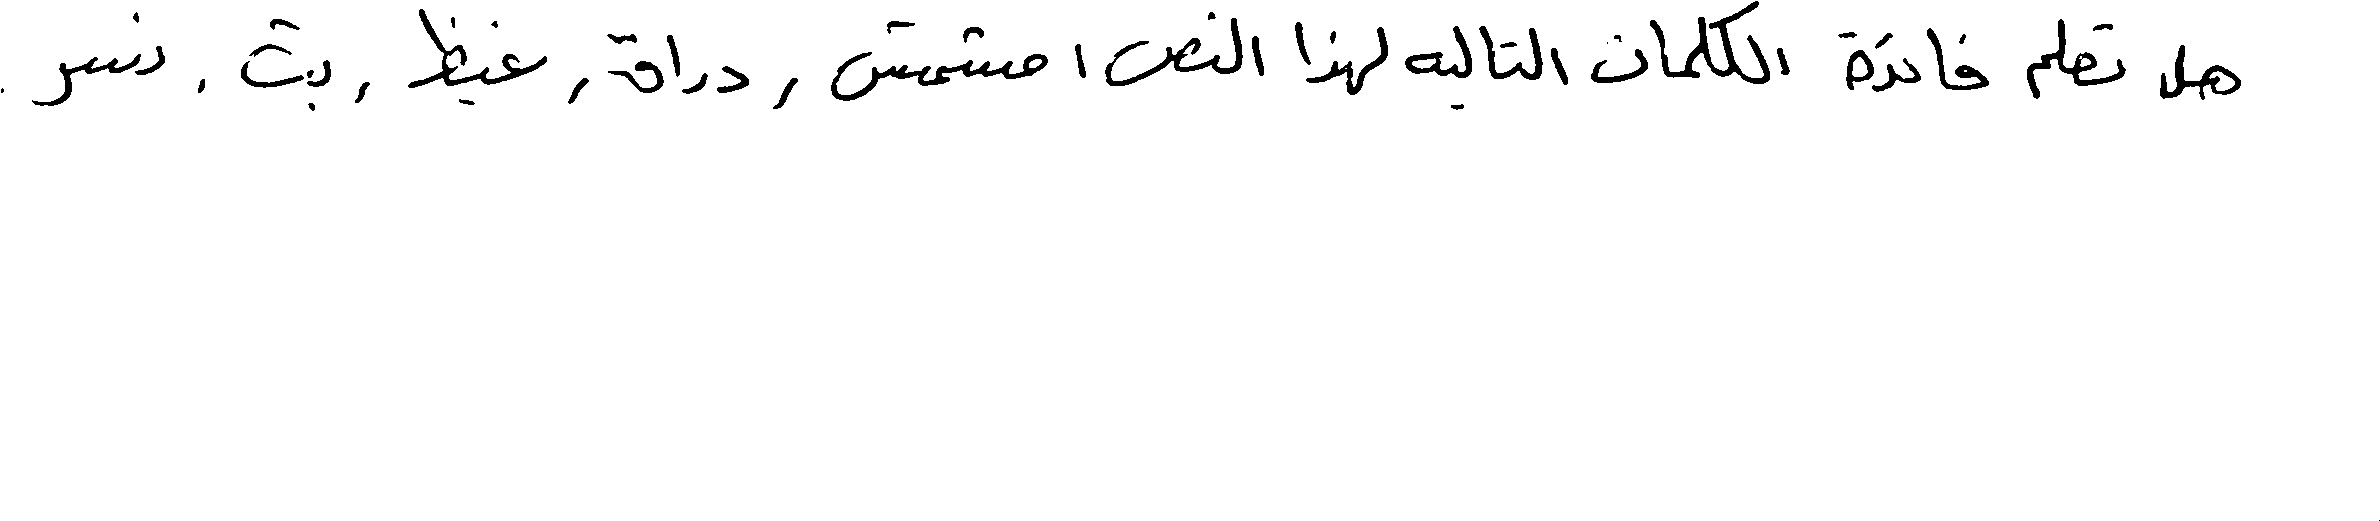 هل تعلم فائدة الكلمات التالية لهذا النص ، مشمش , دراق , غيظ , بث , نسر .